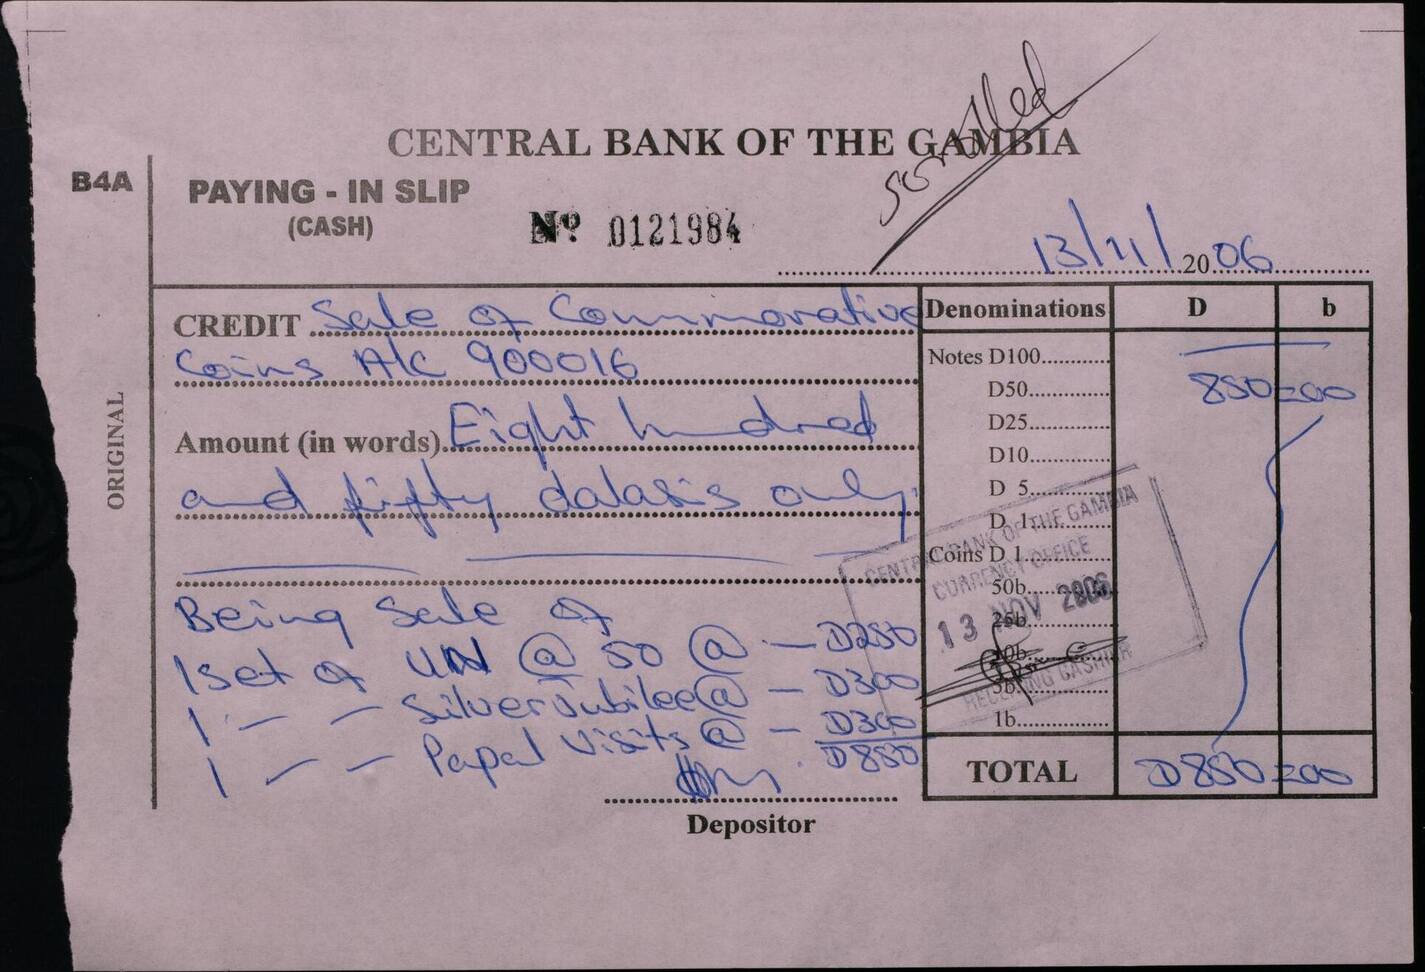 scrolled
CENTRAL BANK OF THE GAMBIA
B4A
PAYING - IN SLIP
(CASH)
Nº 0121984
13/11/2006
ORIGINAL
CREDIT Sale of Commorative
Coins A/C 900016
Amount (in words) Eight hundred
and fifty dalasis only.
Being Sale of
1 set of UN @ 50 @ — D250
1 — — Silver Jubilee @ — D300
1 — — Papal Visits @ — D300
D850
Depositor
Denominations D b
Notes D100
D50 850=00
D25
D10
D 5
D 1
Coins D 1
50b
25b
10b
5b
1b
TOTAL D850=00
CENTRAL BANK OF THE GAMBIA
CURRENCY OFFICE
13 NOV 2006
RECEIVING CASHIER